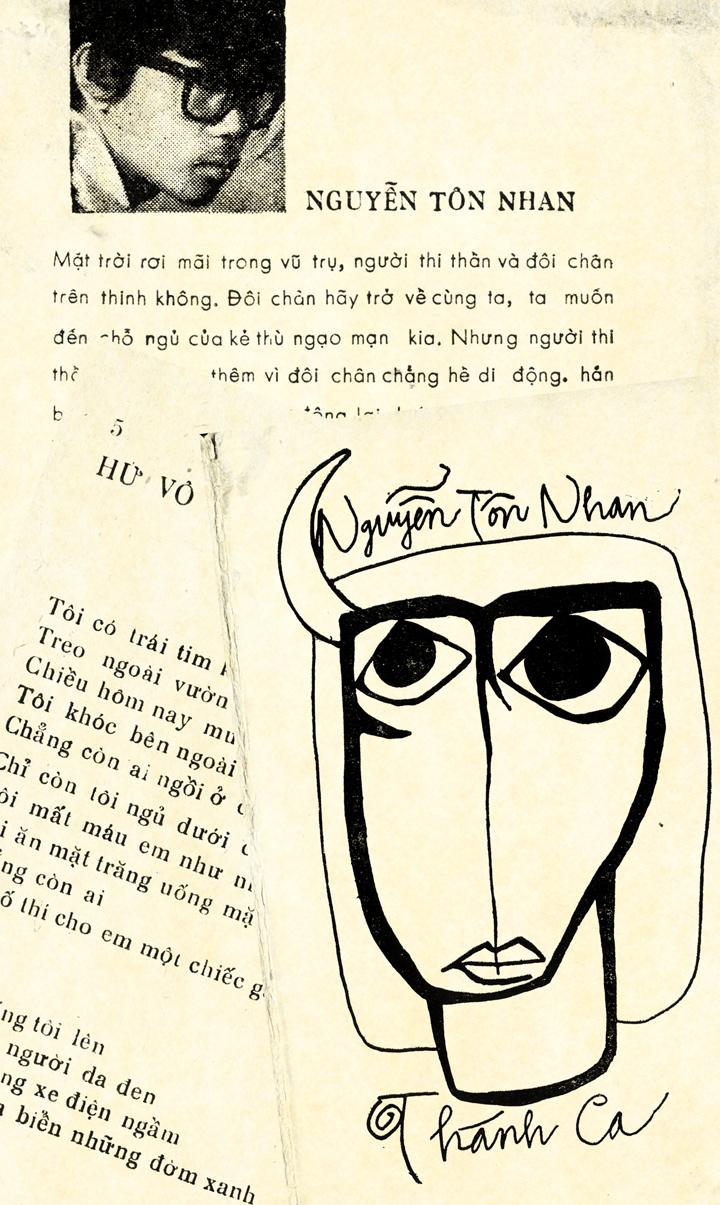 NGUYỄN TÔN NHAN
Mặt trời rơi mãi trong vũ trụ, người thi thần và đôi chân
trên thinh không. Đôi chân hãy trở về cùng ta, ta muốn
đến chỗ ngủ của kẻ thù ngạo mạn kia. Nhưng người thi
thêm vì đôi chân chẳng hề di động. hắn
5
HƯ VÔ
Tôi có trái tim
Treo ngoài vườn
Chiều hôm nay
Tôi khóc bên ngoài
Chẳng còn ai ngồi ở
Chỉ còn tôi ngủ dưới
mất máu em như
ăn mặt trăng uống
còn ai
thí cho em một chiếc
tôi lên
người da đen
xe điện ngầm
biển những đờm xanh
Nguyễn Tôn Nhan
Thánh Ca